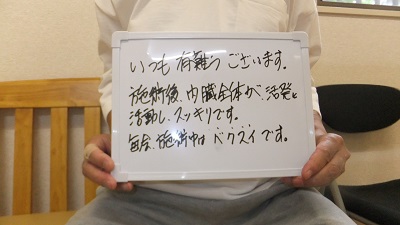 いつも有難うございます。
施術後、内臓全体が、活発に
活動し、スッキリです。
毎回、施術中はバクスイです。